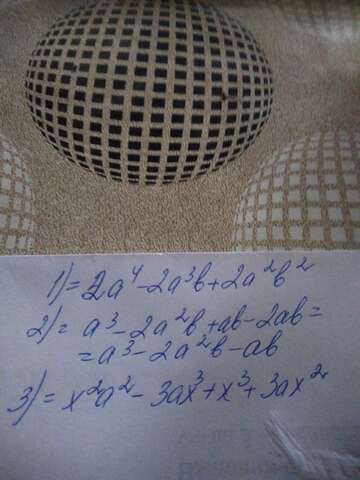 1) = 2a⁴ - 2a³b + 2a²b²
2) = a³ - 2a²b + ab - 2ab =
= a³ - 2a²b - ab
3) = x²a² - 3ax³ + x³ + 3ax²